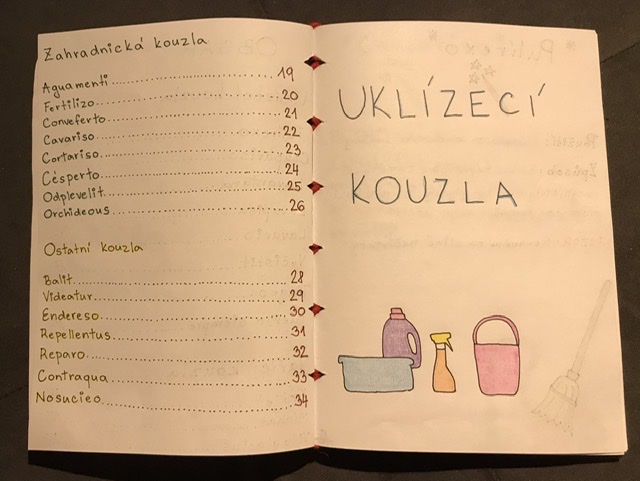 Zahradnická kouzla
Aguamenti 19
Fertilizo 20
Conveferto 21
Cavariso 22
Cortariso 23
Césperto 24
Odplevelit 25
Orchideous 26
Ostatní kouzla
Balit 28
Videatur 29
Endereso 30
Repellentus 31
Reparo 32
Contraqua 33
Nosucieo 34
UKLÍZECÍ
KOUZLA